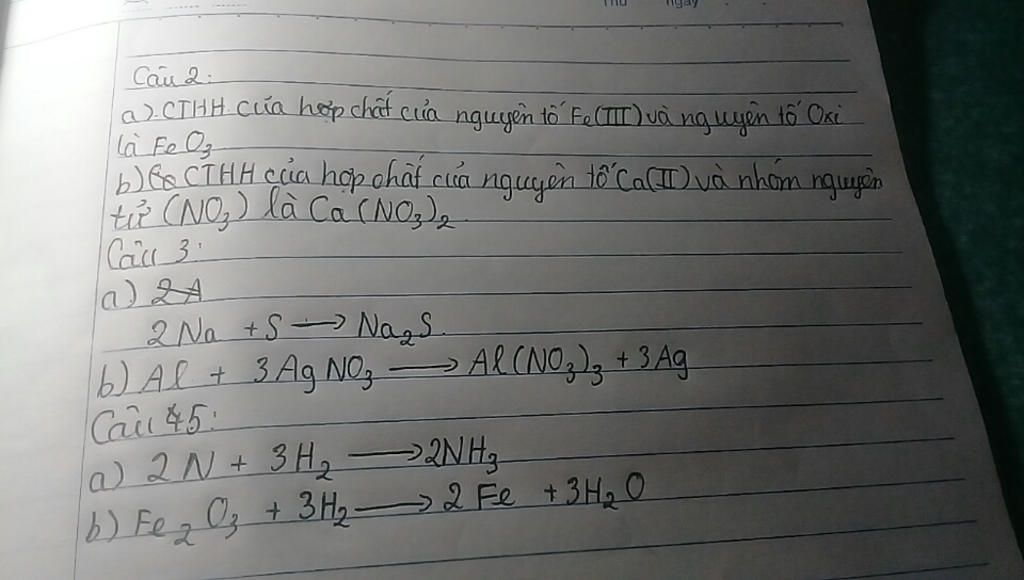 Thứ ngày
Câu 2:
a) CTHH của hợp chất của nguyên tố Fe(III) và nguyên tố Oxi
là FeO₃
b) CTHH của hợp chất của nguyên tố Ca(II) và nhóm nguyên
tử (NO₃) là Ca(NO₃)₂
Câu 3:
a)
2Na + S → Na₂S.
b) Al + 3AgNO₃ → Al(NO₃)₃ + 3Ag
Câu 5:
a) 2N + 3H₂ → 2NH₃
b) Fe₂O₃ + 3H₂ → 2Fe + 3H₂O